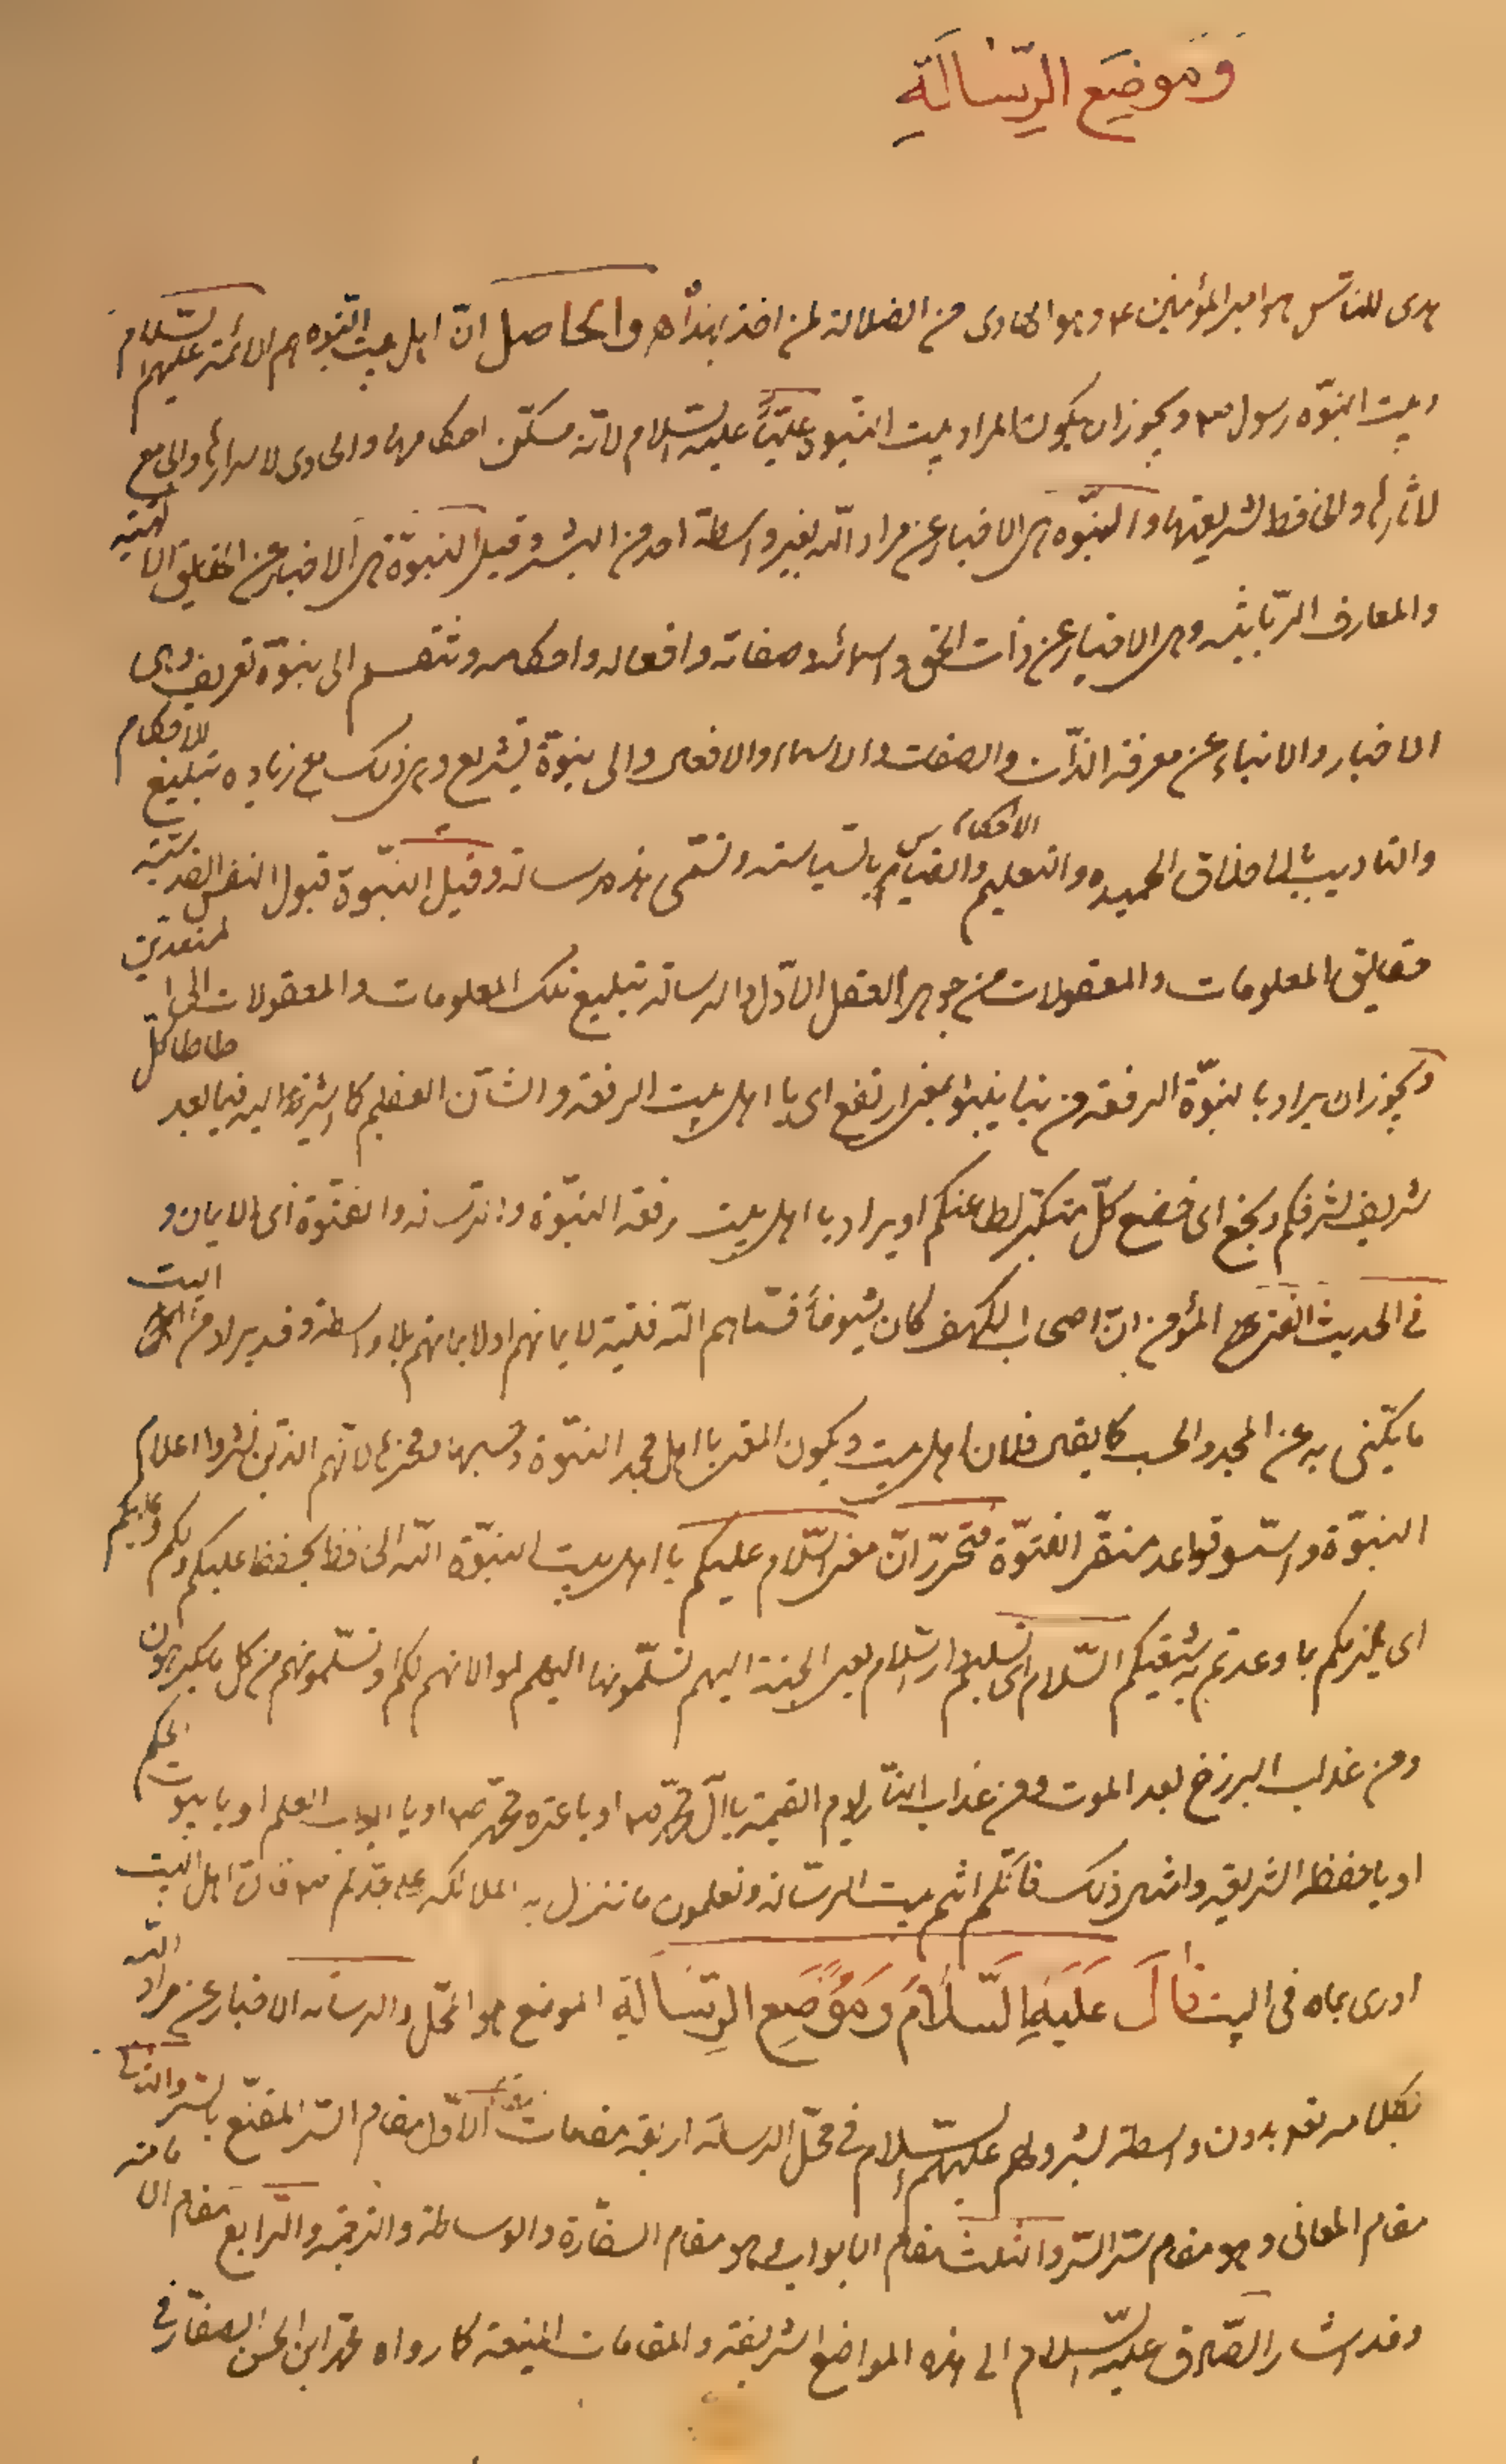 وَمَوضِعَ الرِّسَالَةِ
هدى للناس هو امير المؤمنين ع وهو الهادى من الضلالة لمن اخذ بهداه والحاصل انّ اهل بيت النّبوه هم الائمة عليهم السّلام
وبيت النبوّه رسول ص ويجوز ان يكون المراد ببيت النبّوه عليّاً عليه السّلام لانّه مسكن احكامها والحاوى لاسرارها والجامع
لاثارها والحافظ لشريعتها والنبّوه هى الاخبار عن مراد الله بغير واسطة احد من البشر وقيل النبوّة هى الاخبار عن الحقايق الالهيّة
والمعارف الرّبانيّه وهى الاخبار عن ذات الحق واسمائه وصفاته وافعاله واحكامه وتنقسم الى نبوّة تعريف وهى
الاخبار والانباء عن معرفة الذّات والصفات والاسماء والافعال والى نبوّة تشريع وهى ذلك مع زيادة تبليغ الاحكام
والتاديب بالاخلاق الحميده والتعليم الاحكام والقيام بالسّياسة وتسمّى هذه رسالة وقيل النبّوة قبول النفس القدسيّه
حقايق المعلومات والمعقولات من جوهر العقل الاوّل والرسالة تبليغ تلك المعلومات والمعقولات الى المستعدّين
ويجوز ان يراد بالنبوّة الرفعه من نبا ينبو بمعنى ارتفع اى يا اهل بيت الرفعة والشأن العظيم كما اشير اليه فيما بعد طاطا كلّ
شريف لشرفكم وبخع اى خضع كلّ متكبّر لطاعتكم او يراد يا اهل بيت رفعة النبّوة والرسالة والفتوّة اى الايمان و
فى الحديث الفتى المؤمن انّ اصحاب الكهف كان شيوخاً فسمّاهم الله فتية لايمانهم او لايمانهم بلا واسطة وقد يراد من البيت
ما يكنّى به عن المجد والحسب كما يقال فلان اهل بيت ويكون المعنى يا اهل مجد النبّوة وحسبها وفخرها لانّهم الذين نشروا اعلام
النبوّة واسّسوا قواعد مستقرّ الفتوّة فتحرّر انّ معنى السّلام عليكم يا اهل بيت النبوّة الله الحافظ يحفظ عليكم ولكم وبكم
اى يلزمكم بما وعدتم به شيعتكم السّلام اى تسليم دار السّلام يعنى الجنة اليهم تسلّمونها اليهم لموالاتهم لكم او تسلّمونهم من كل ما يكرهون
ومن عذاب البرزخ بعد الموت ومن عذاب النّار يوم القيمة يا آل محمّد ص او يا عترة محمّد ص او يا ابواب العلم او يا بيوت الحكم
او يا حفظة الشريعة وامثال ذلك فانّكم انتم بيت الرسّالة وتعلمون ما تنزل به الملائكه على جدّكم ص فان اهل البيت
ادرى بما فى البيت قَالَ عَلَيْهِ السَّلَامُ وَمَوْضِعِ الرِّسَالَةِ الموضع هو المحلّ والرسالة الاخبار عن مراد الله
بكلامه تعالى بدون واسطة بشر ولهم عليهم السّلام فى محلّ الرسالة اربعة مقامات الاوّل مقام السّر المقنّع بالسّر والثانى
مقام المعانى وهو مقام سّر السّر والثالث مقام الابواب وهو مقام السفارة والوساطة والترجمة والرّابع مقام الامامة
وقد اشار الصّادق عليه السّلام الى هذه المواضع الشريفة والمقامات المنيعة كما رواه محمّد ابن الحسن الصفّار فى